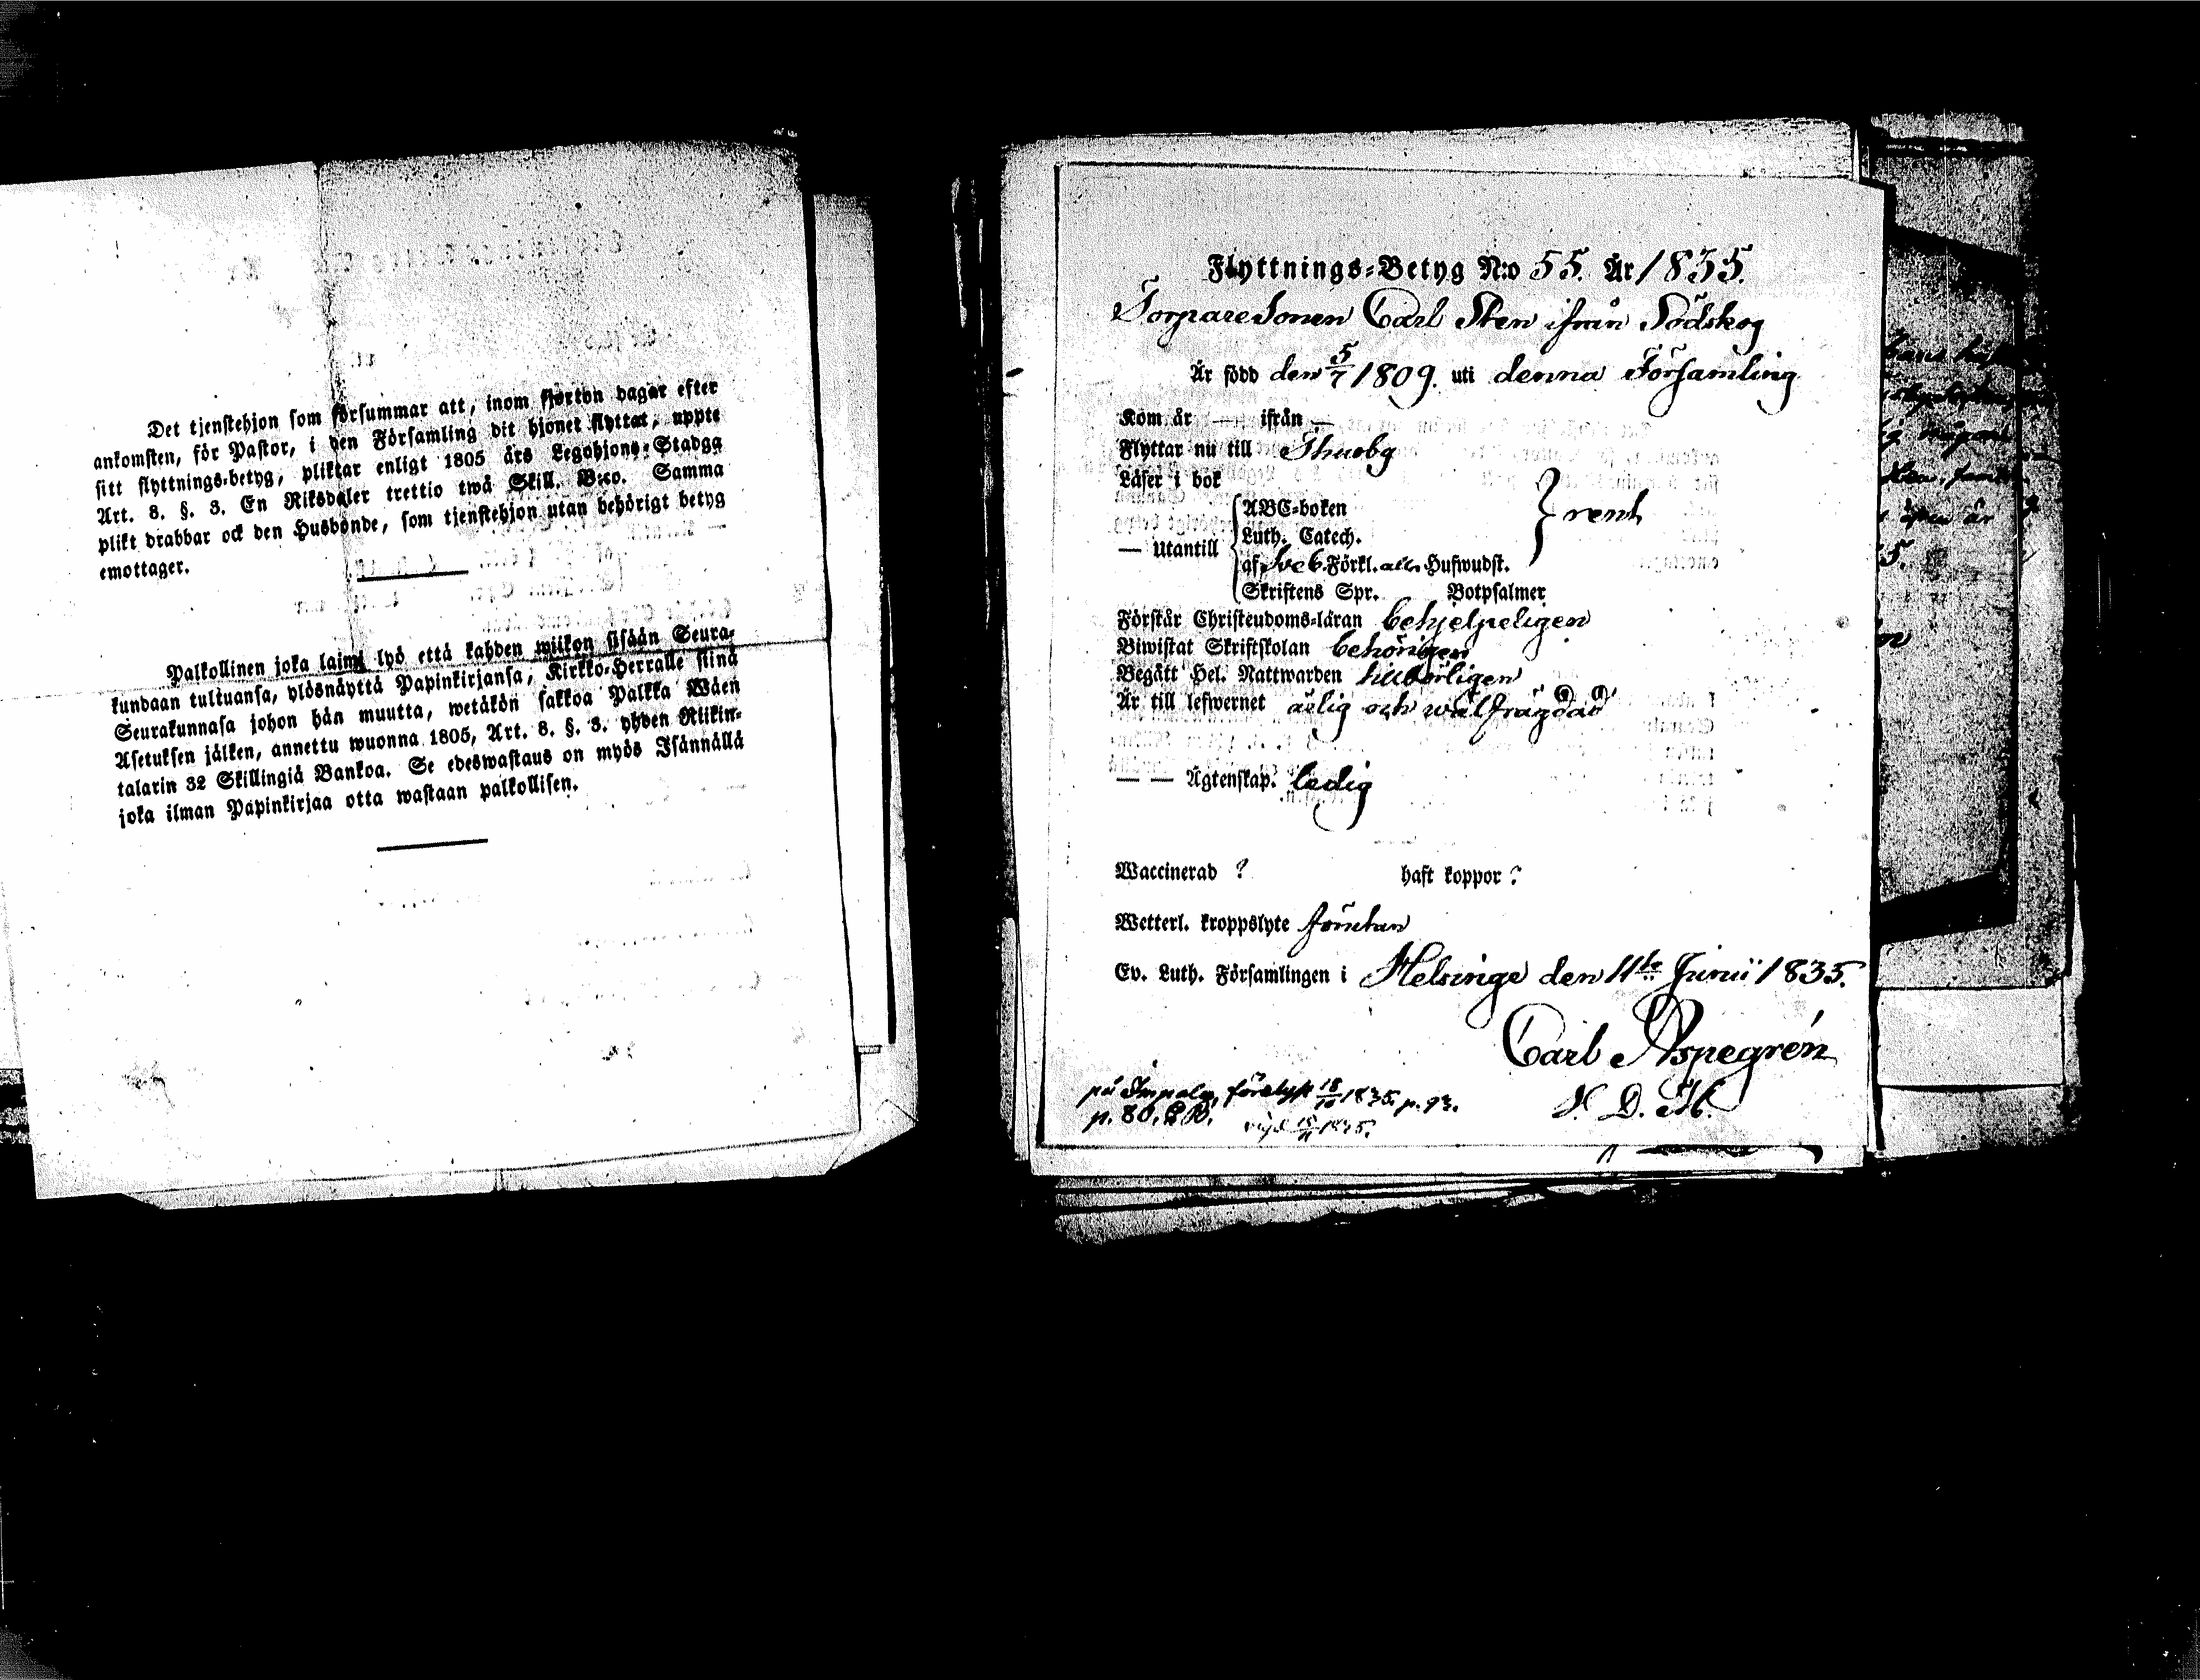 Det tjenstehjon som försummar att, inom fjorton dagar efter
ankomsten, för Pastor, i den Församling dit hjonet flyttat, uppte
sitt flyttnings-betyg, pliktar enligt 1805 års Legohjons-Stadga
Art. 8. §. 3. En Riksdaler trettio twå Skill. B:co. Samma
plikt drabbar ock den Husbonde, som tjenstehjon utan behörigt betyg
emottager.
Palkollinen joka laimi lyö että kahden wiikon sisään Seura-
kundaan tultuansa, ylösnäyttä Papinkirjansa, Kirkko-Herralle siinä
Seurakunnasa johon hän muutta, wetäkön sakkoa Palkka Wäen
Asetuksen jälken, annettu wuonna 1805, Art. 8. §. 3. yhden Riikin-
talarin 32 Skillingiä Bankoa. Se edeswastaus on myös Isännällä
joka ilman Papinkirjaa otta wastaan palkollisen.
Flyttnings-Betyg N:o 55. År 1835.
Torpare Sonen Carl Sten ifrån Södskog
Är född den 5/7 1809. uti denna Församling
Kom år — ifrån —
Flyttar nu till Thusby
Läser i bok
— Utantill
ABC-boken
Luth. Catech.
af Sveb. Förkl. alla Hufwudst.
Skriftens Spr. Botpsalmer
rent
Förstår Christendoms-läran behjelpeligen
Biwistat Skriftskolan behörigen
Begått Hel. Nattwarden
Är till lefwernet ärlig och wälfrägdad
— — Ägtenskap. ledig
Waccinerad ? haft koppor ?
Wetterl. kroppslyte förutan
Ev. Luth. Församlingen i Helsinge den 11te Junii 1835.
Carl Aspegrén
på 18/10 1835. p. 93.
p. 80.
1835.